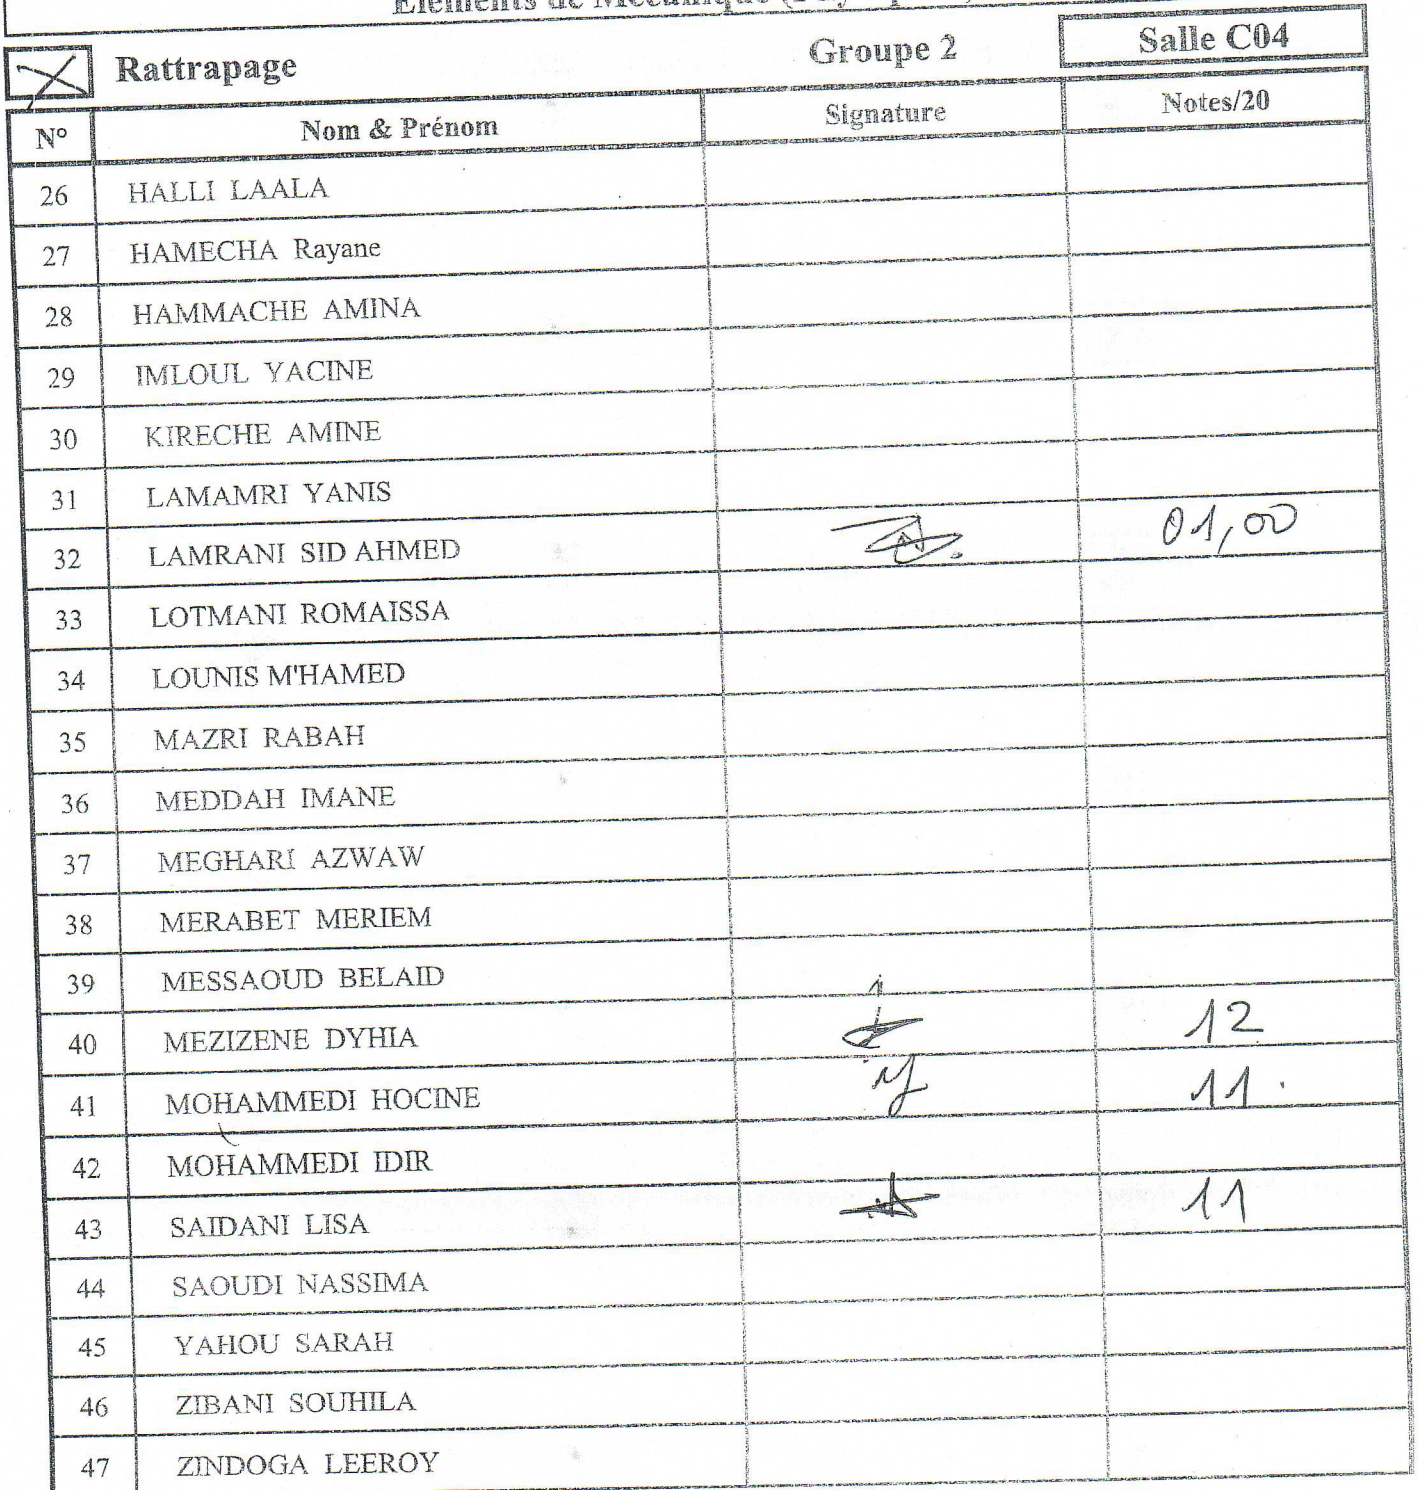 Eléments de Mécanique
Rattrapage Groupe 2 Salle C04
N° Nom & Prénom Signature Notes/20
26 HALLI LAALA
27 HAMECHA Rayane
28 HAMMACHE AMINA
29 IMLOUL YACINE
30 KIRECHE AMINE
31 LAMAMRI YANIS
32 LAMRANI SID AHMED 01,00
33 LOTMANI ROMAISSA
34 LOUNIS M'HAMED
35 MAZRI RABAH
36 MEDDAH IMANE
37 MEGHARI AZWAW
38 MERABET MERIEM
39 MESSAOUD BELAID
40 MEZIZENE DYHIA 12
41 MOHAMMEDI HOCINE 11
42 MOHAMMEDI IDIR
43 SAIDANI LISA 11
44 SAOUDI NASSIMA
45 YAHOU SARAH
46 ZIBANI SOUHILA
47 ZINDOGA LEEROY